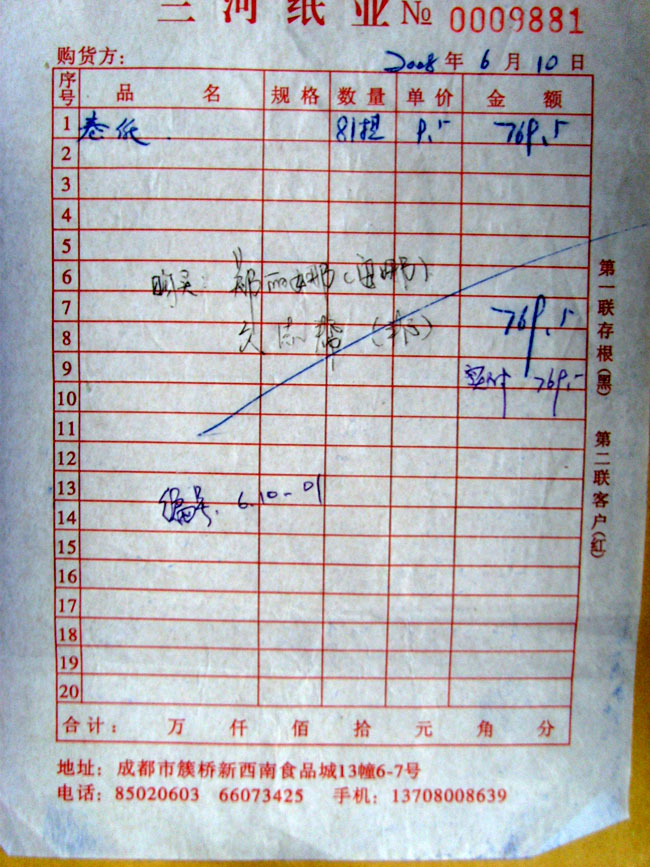 三河纸业 № 0009881
购货方： 2008年6月10日
序号 品名 规格 数量 单价 金额
1 卷纸. 81提 9.5 769.5
2
3
4
5
6 购买:
7 769.5
8
9 实付 769.5
10
11
12
13 编号. 6.10-01
14
15
16
17
18
19
20
合计： 万 仟 佰 拾 元 角 分
地址：成都市簇桥新西南食品城13幢6-7号
电话：85020603 66073425 手机：13708008639
第一联存根(黑) 第二联客户(红)